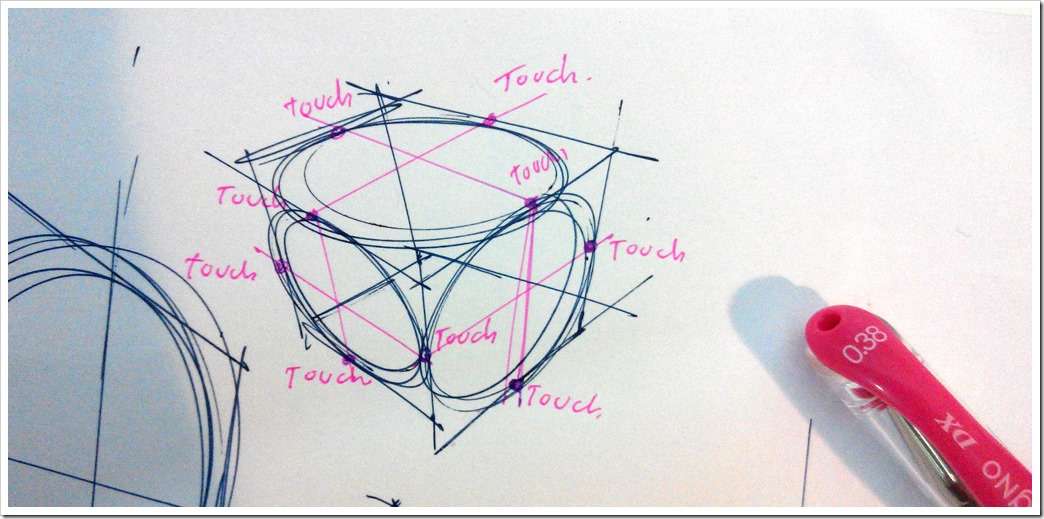 Touch.
touch
touch
Touch
Touch
touch
Touch
Touch
Touch.
0.38
DX
gNO